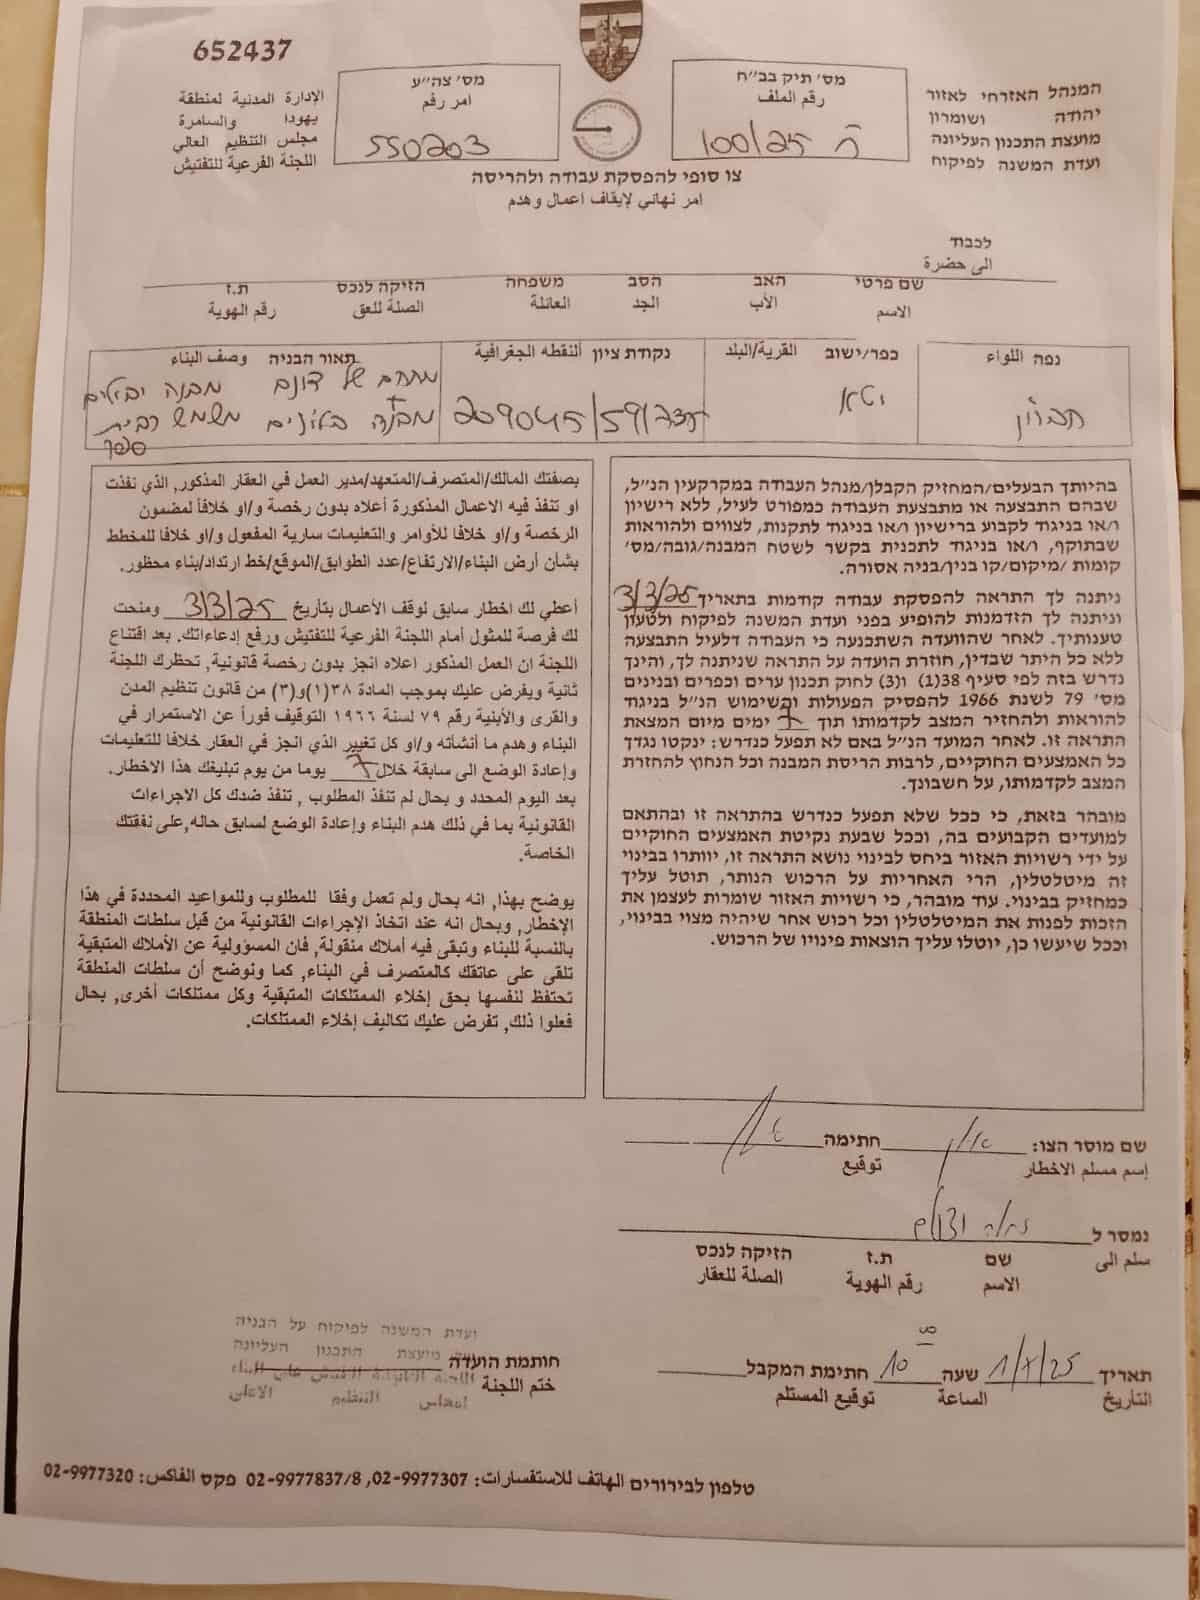 652437
המנהל האזרחי לאזור
יהודה ושומרון
מועצת התכנון העליונה
ועדת המשנה לפיקוח
מס׳ תיק בב״ח
رقم الملف
ח 100/25
מס׳ צה״ע
امر رقم
550203
الإدارة المدنية لمنطقة
يهودا والسامرة
مجلس التنظيم العالي
اللجنة الفرعية للتفتيش
צו סופי להפסקת עבודה ולהריסה
امر نهائي لإيقاف اعمال وهدم
לכבוד
الى حضرة
שם פרטי האב הסב משפחה הזיקה לנכס ת.ז
الاسم الأب الجد العائلة الصلة للعق رقم الهوية
נפה اللواء
חברון
כפר/ישוב القرية/البلد
יטא
נקודת ציון ألنقطه الجغرافية
תאור הבניה وصف البناء
מתחם של דונם
מבנה
משמש
בהיותך הבעלים/המחזיק הקבלן/מנהל העבודה במקרקעין הנ״ל,
שבהם התבצעה או מתבצעת העבודה כמפורט לעיל, ללא רישיון
ו/או בניגוד לקבוע ברישיון ו/או בניגוד לתקנות, לצווים ולהוראות
שבתוקף, ו/או בניגוד לתכנית בקשר לשטח המבנה/גובה/מס׳
קומות /מיקום/קו בנין/בניה אסורה.
ניתנה לך התראה להפסקת עבודה קודמות בתאריך 3/3/25
וניתנה לך הזדמנות להופיע בפני ועדת המשנה לפיקוח ולטעון
טענותיך. לאחר שהוועדה השתכנעה כי העבודה דלעיל התבצעה
ללא כל היתר שבדין, חוזרת הועדה על התראה שניתנה לך, והינך
נדרש בזה לפי סעיף 38(1) ו(3) לחוק תכנון ערים וכפרים ובנינים
מס׳ 79 לשנת 1966 להפסיק הפעולות והשימוש הנ״ל בניגוד
להוראות ולהחזיר המצב לקדמותו תוך 7 ימים מיום המצאת
התראה זו. לאחר המועד הנ״ל באם לא תפעל כנדרש: ינקטו נגדך
כל האמצעים החוקיים, לרבות הריסת המבנה וכל הנחוץ להחזרת
המצב לקדמותו, על חשבונך.
מובהר בזאת, כי ככל שלא תפעל כנדרש בהתראה זו ובהתאם
למועדים הקבועים בה, וככל שבעת נקיטת האמצעים החוקיים
על ידי רשויות האזור ביחס לבינוי נושא התראה זו, יוותרו בבינוי
זה מיטלטלין, הרי האחריות על הרכוש הנותר, תוטל עליך
כמחזיק בבינוי. עוד מובהר, כי רשויות האזור שומרות לעצמן את
הזכות לפנות את המיטלטלין וכל רכוש אחר שיהיה מצוי בבינוי,
וככל שיעשו כן, יוטלו עליך הוצאות פינויו של הרכוש.
بصفتك المالك/المتصرف/المتعهد/مدير العمل في العقار المذكور, الذي نفذت
او تنفذ فيه الاعمال المذكورة أعلاه بدون رخصة و/او خلافاً لمضمون
الرخصة و/او خلافا للأوامر والتعليمات سارية المفعول و/او خلافا للمخطط
بشأن أرض البناء/الارتفاع/عدد الطوابق/الموقع/خط ارتداد/بناء محظور.
أعطي لك اخطار سابق لوقف الأعمال بتأريخ 3/3/25 ومنحت
لك فرصة للمثول أمام اللجنة الفرعية للتفتيش ورفع إدعاءاتك. بعد اقتناع
اللجنة ان العمل المذكور اعلاه انجز بدون رخصة قانونية, تحظرك اللجنة
ثانية ويفرض عليك بموجب المادة ٣٨(١)و(٣) من قانون تنظيم المدن
والقرى والأبنية رقم ٧٩ لسنة ١٩٦٦ التوقيف فوراً عن الاستمرار في
البناء وهدم ما أنشأته و/او كل تغيير الذي انجز في العقار خلافا للتعليمات
وإعادة الوضع الى سابقة خلال 7 يوما من يوم تبليغك هذا الاخطار.
بعد اليوم المحدد و بحال لم تنفذ المطلوب , تنفذ ضدك كل الاجراءات
القانونية بما في ذلك هدم البناء وإعادة الوضع لسابق حاله,على نفقتك
الخاصة.
يوضح بهذا, انه بحال ولم تعمل وفقا للمطلوب وللمواعيد المحددة في هذا
الإخطار, وبحال انه عند اتخاذ الإجراءات القانونية من قبل سلطات المنطقة
بالنسبة للبناء وتبقى فيه أملاك منقولة, فان المسؤولية عن الأملاك المتبقية
تلقى على عاتقك كالمتصرف في البناء, كما ونوضح أن سلطات المنطقة
تحتفظ لنفسها بحق إخلاء الممتلكات المتبقية وكل ممتلكات أخرى, بحال
فعلوا ذلك, تفرض عليك تكاليف إخلاء الممتلكات.
שם מוסר הצו: חתימה
إسم مسلم الاخطار توقيع
נמסר ל
سلم الى
שם ת.ז הזיקה לנכס
الاسم رقم الهوية الصلة للعقار
תאריך שעה 10 חתימת המקבל
التأريخ الساعة توقيع المستلم
חותמת הועדה
ختم اللجنة
ועדת המשנה לפיקוח על הבניה
מועצת התכנון העליונה
טלפון לבירורים الهاتف للاستفسارات: 02-9977307, 02-9977837/8 פקס الفاكس: 02-9977320